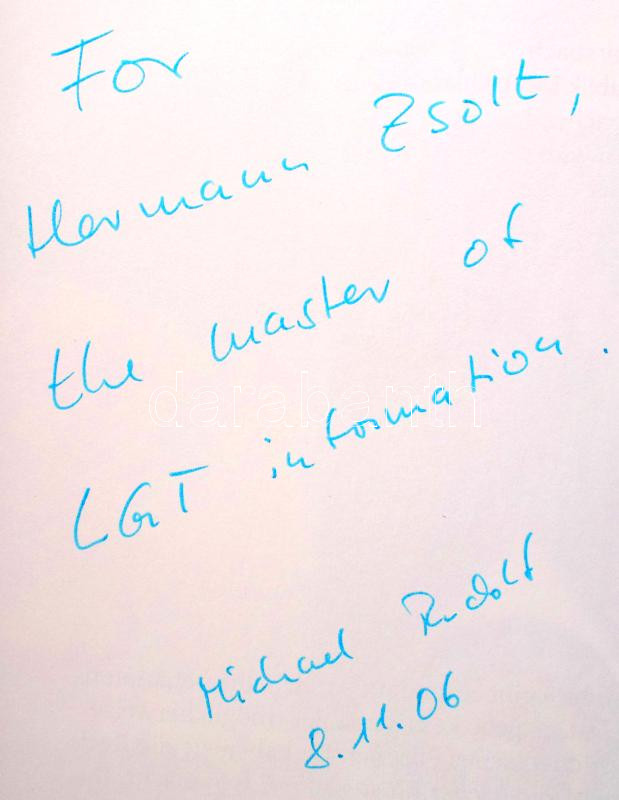 For
Hermann Zsolt,
the master of
LGT information.
Michael Rudolf
8.11.06
darabanth